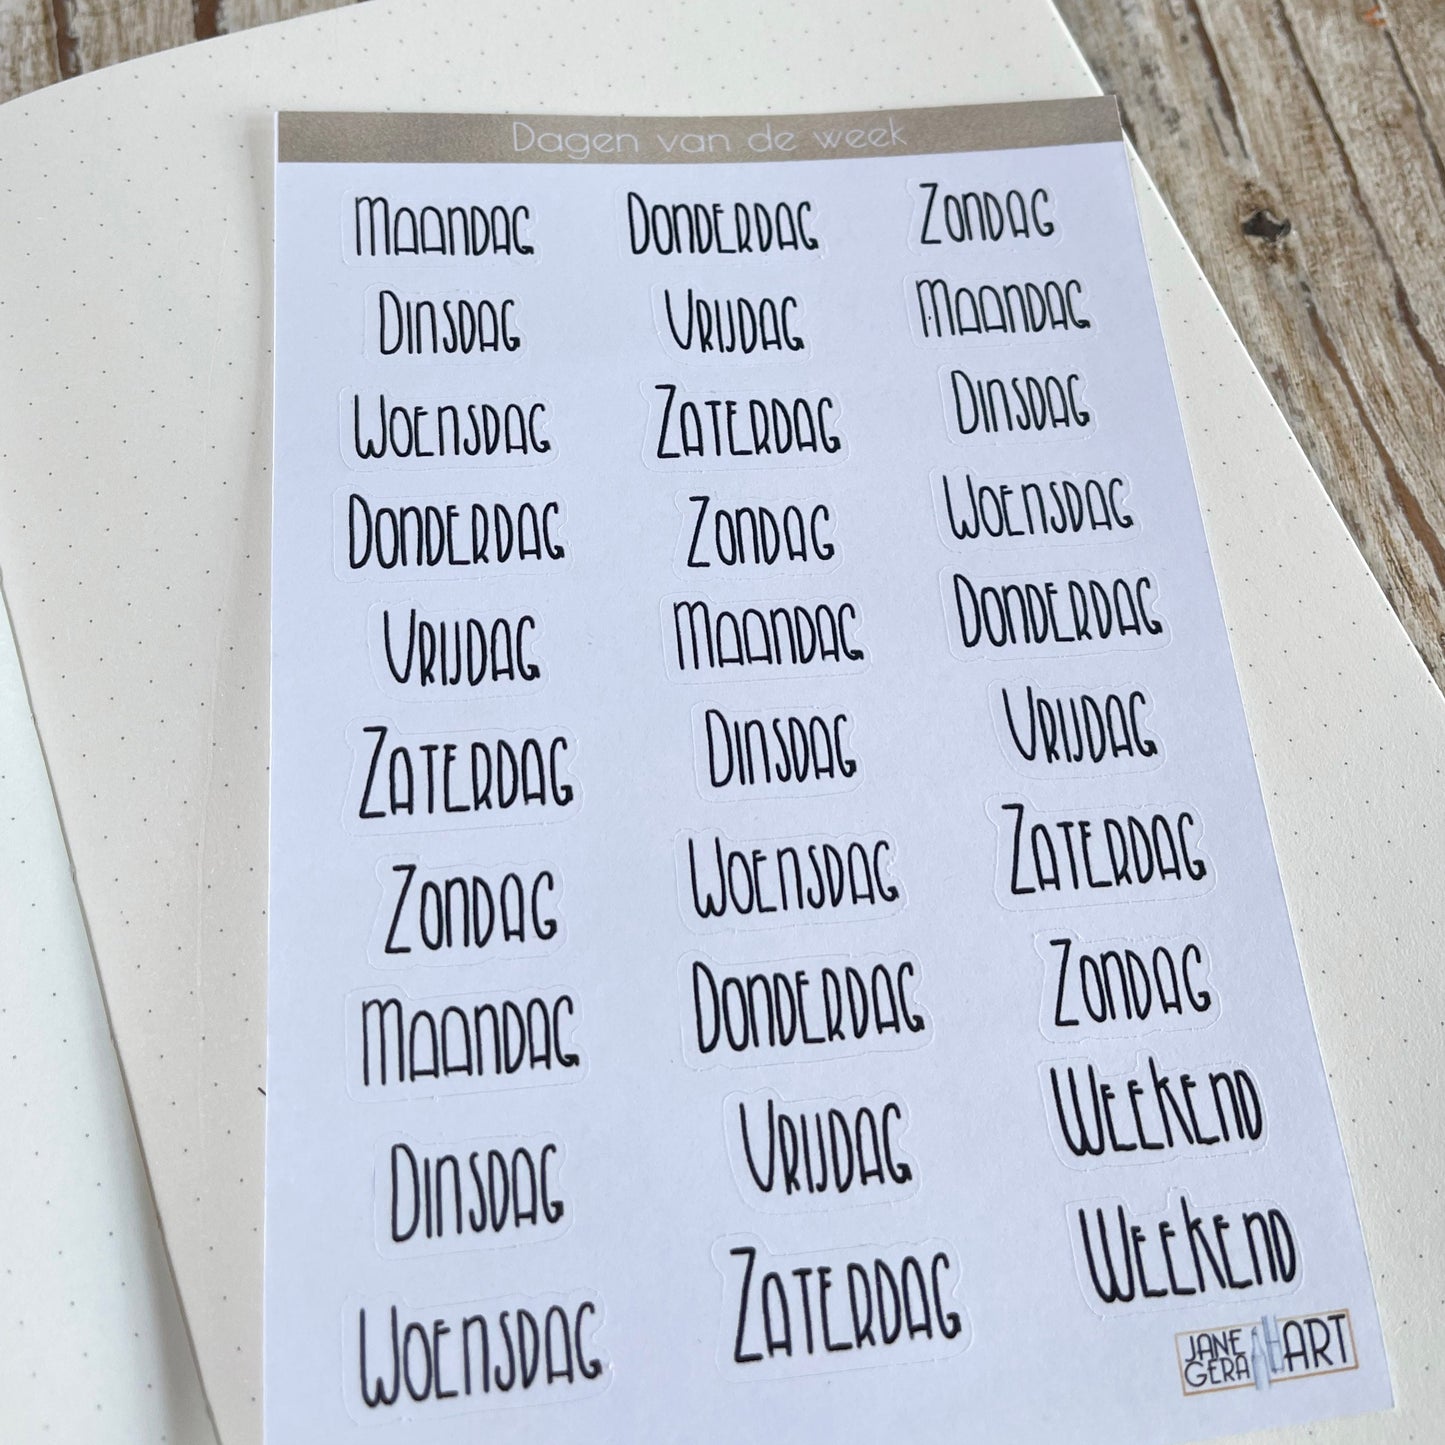 Dagen van de week
MAANDAG
DINSDAG
WOENSDAG
DONDERDAG
VRIJDAG
ZATERDAG
ZONDAG
MAANDAG
DINSDAG
WOENSDAG
DONDERDAG
VRIJDAG
ZATERDAG
ZONDAG
MAANDAG
DINSDAG
WOENSDAG
DONDERDAG
VRIJDAG
ZATERDAG
ZONDAG
MAANDAG
DINSDAG
WOENSDAG
DONDERDAG
VRIJDAG
ZATERDAG
ZONDAG
WEEKEND
WEEKEND
JANE
GERA
ART